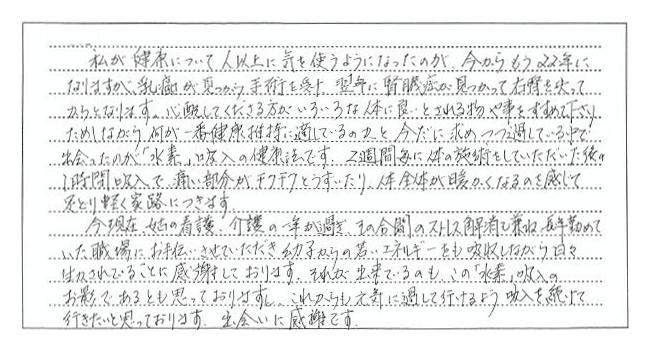 私が健康について人以上に気を使うようになったのが、今からもう22年に
なりますが、乳癌が見つかり手術を受け、翌年に腎臓癌が見つかって右腎を失って
からとなります。心配してくださる方がいろいろな体に良いとされる物や事をすすめて下さり、
ためしながら何が一番健康維持に適しているのかと今だに求めつつ過している中で
出会ったのが「水素」吸入の健康法です。2週間毎に体の施術をしていただいた後の
1時間吸入で、痛い部分がチクチクとうずいたり、体全体が暖かくなるのを感じて
足どり軽く家路につきます。
今現在、の看護、介護の一年が過ぎ、その合間のストレス解消も兼ね、長年勤めて
いた職場にお手伝いさせていただき幼子からの若いエネルギーをも吸収しながら日々
生かされていることに感謝しております。それが出来ているのも、この「水素」吸入の
お影であるとも思っておりますし、これからも元気に過して行けるよう吸入を続けて
行きたいと思っております。出会いに感謝です。